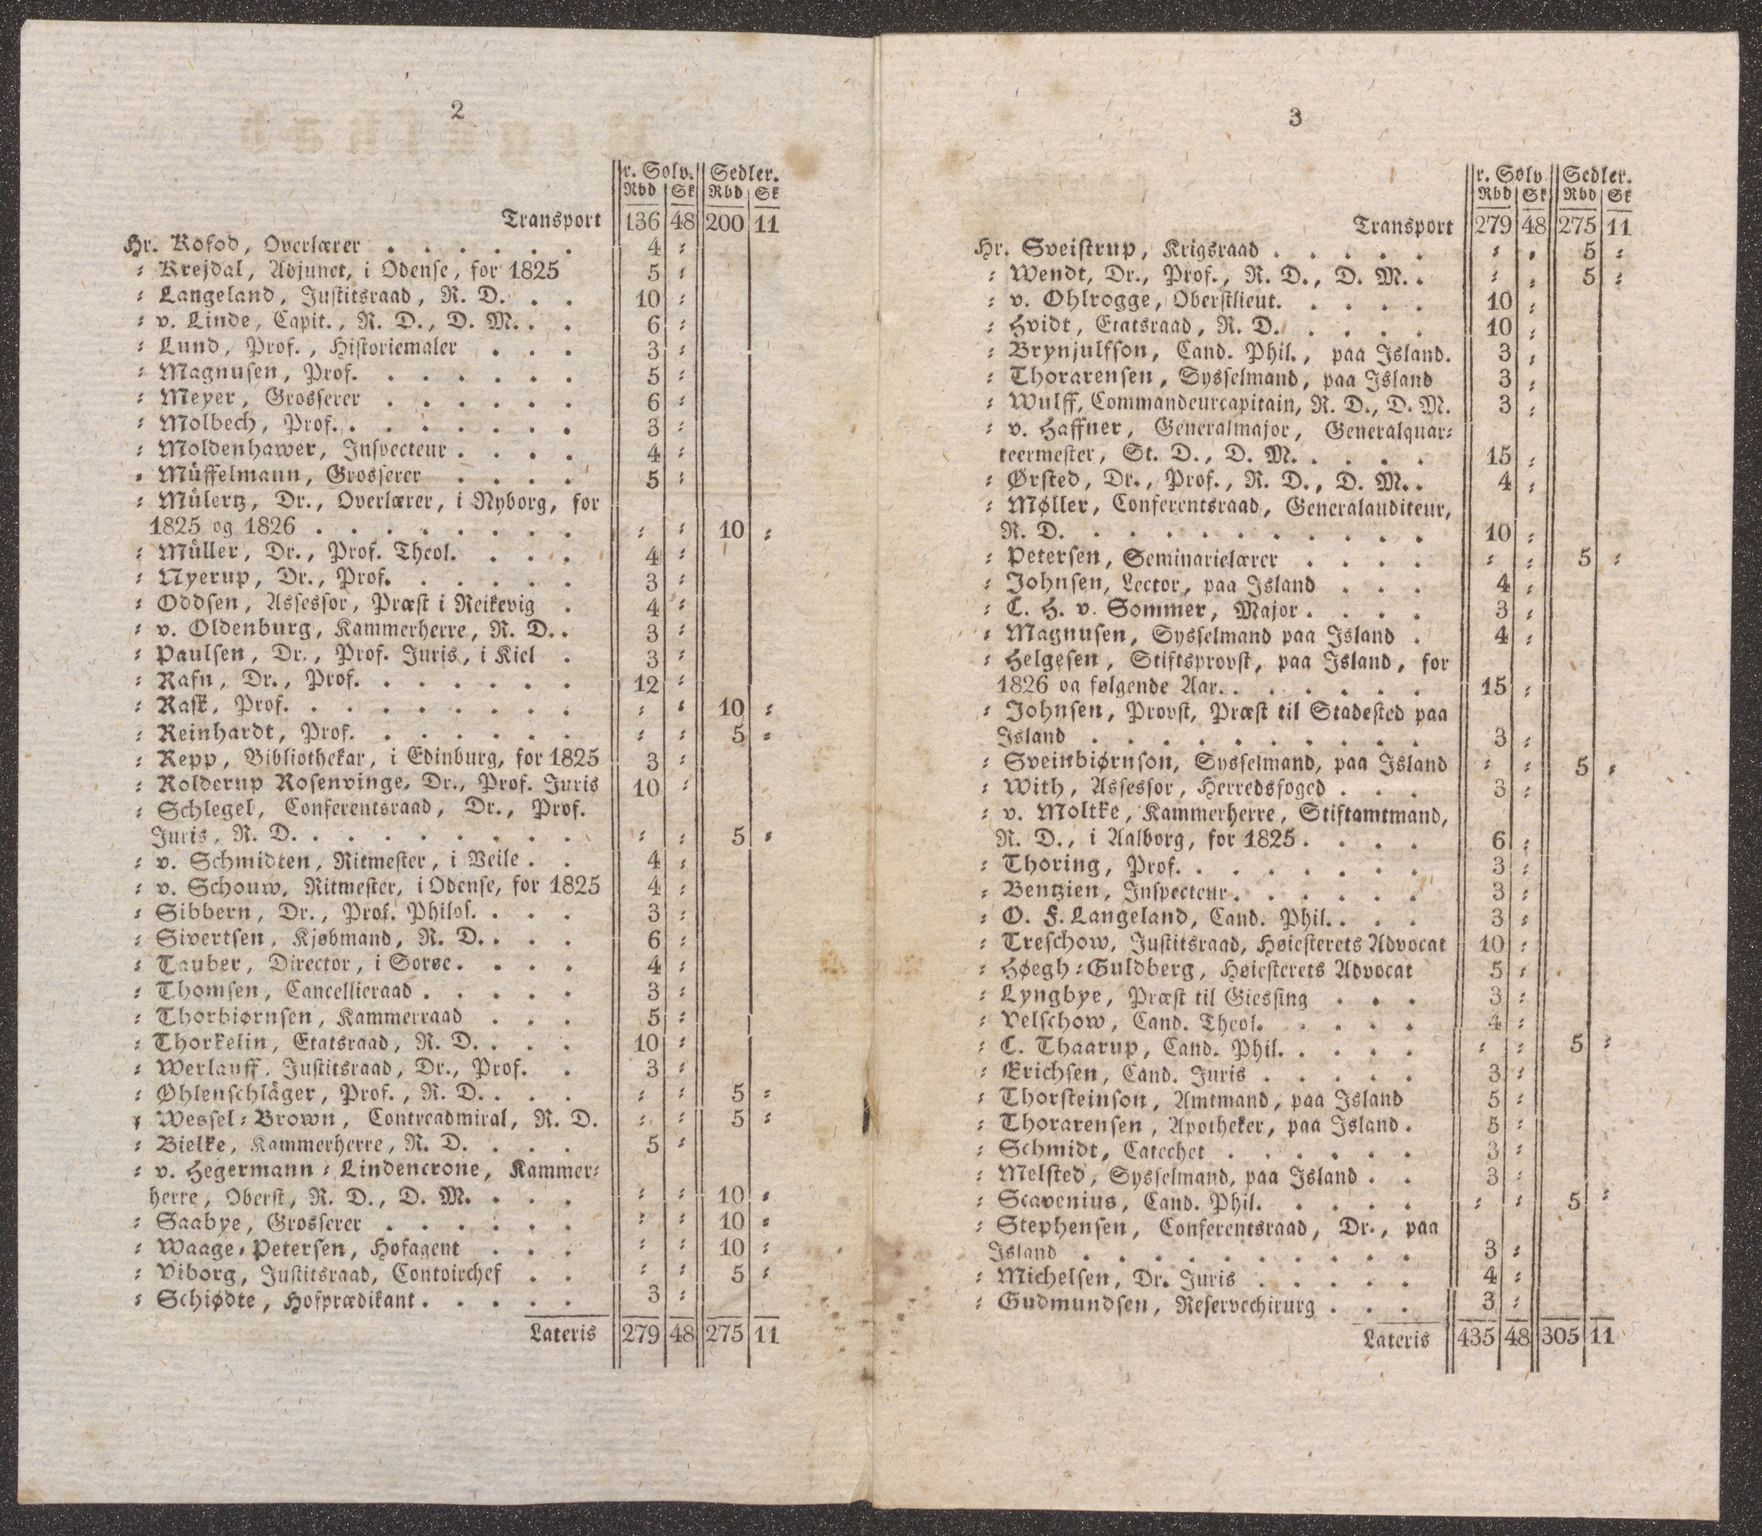 2
r. Sølv. Sedler.
Rbd Sk Rbd Sk
Transport 136 48 200 11
Hr. Kofod, Overlærer . . . . . . 4 :
: Krejdal, Adjunct, i Odense, for 1825 5 :
: Langeland, Justitsraad, R. D. . . 10 :
: v. Linde, Capit., R. D., D. M. . . 6 :
: Lund, Prof., Historiemaler . . . 3 :
: Magnusen, Prof. . . . . . . 5 :
: Meyer, Grosserer . . . . . . 6 :
: Molbech, Prof. . . . . . . . 3 :
: Moldenhawer, Inspecteur . . . . 4 :
: Müffelmann, Grosserer . . . . 5 :
: Mülertz, Dr., Overlærer, i Nyborg, for
1825 og 1826 . . . . . . . . : : 10 :
: Müller, Dr., Prof. Theol. . . . 4 :
: Nyerup, Dr., Prof. . . . . . 3 :
: Oddsen, Assessor, Præst i Reikevig . 4 :
: v. Oldenburg, Kammerherre, R. D. . 3 :
: Paulsen, Dr., Prof. Juris, i Kiel . 3 :
: Rafn, Dr., Prof. . . . . . . 12 :
: Rask, Prof. . . . . . . . . : : 10 :
: Reinhardt, Prof. . . . . . . : : 5 :
: Repp, Bibliothekar, i Edinburg, for 1825 3 :
: Kolderup Rosenvinge, Dr., Prof. Juris 10 :
: Schlegel, Conferentsraad, Dr., Prof.
Juris, R. D. . . . . . . . . : : 5 :
: v. Schmidten, Ritmester, i Veile . . 4 :
: v. Schouw, Ritmester, i Odense, for 1825 4 :
: Sibbern, Dr., Prof. Philos. . . . 3 :
: Sivertsen, Kjøbmand, R. D. . . . 6 :
: Tauber, Director, i Sorøe . . . . 4 :
: Thomsen, Cancellieraad . . . . . 3 :
: Thorbiørnsen, Kammerraad . . . 5 :
: Thorkelin, Etatsraad, R. D. . . . 10 :
: Werlauff, Justitsraad, Dr., Prof. . 3 :
: Øhlenschläger, Prof., R. D. . . . : : 5 :
: Wessel:Brown, Contreadmiral, R. D. : : 5 :
: Bielke, Kammerherre, R. D. . . . 5 :
: v. Hegermann:Lindencrone, Kammer:
herre, Oberst, R. D., D. M. . . . : : 10 :
: Saabye, Grosserer . . . . . . : : 10 :
: Waage:Petersen, Hofagent . . . : : 10 :
: Viborg, Justitsraad, Contoirchef . . : : 5 :
: Schiødte, Hofprædikant . . . . . 3 :
Lateris 279 48 275 11
3
r. Sølv Sedler.
Rbd Sk Rbd Sk
Transport 279 48 275 11
Hr. Sveistrup, Krigsraad . . . . . : : 5 :
: Wendt, Dr., Prof., R. D., D. M. . : : 5 :
: v. Ohlrogge, Oberstlieut. . . . . 10 :
: Hvidt, Etatsraad, R. D. . . . . 10 :
: Brynjulfson, Cand. Phil., paa Island. 3 :
: Thorarensen, Sysselmand, paa Island 3 :
: Wulff, Commandeurcapitain, R. D., D. M. 3 :
: v. Haffner, Generalmajor, Generalquar:
teermester, St. D., D. M. . . . . 15 :
: Ørsted, Dr., Prof., R. D., D. M. . 4 :
: Møller, Conferentsraad, Generalauditeur,
R. D. . . . . . . . . . . 10 :
: Petersen, Seminarielærer . . . . : : 5 :
: Johnsen, Lector, paa Island . . . 4 :
: C. H. v. Sommer, Major . . . . 3 :
: Magnusen, Sysselmand paa Island . 4 :
: Helgesen, Stiftsprovst, paa Island, for
1826 og følgende Aar. . . . . . . 15 :
: Johnsen, Provst, Præst til Stadested paa
Island . . . . . . . . . . 3 :
: Sveinbiørnson, Sysselmand, paa Island : : 5 :
: With, Assessor, Herredsfoged . . . 3 :
: v. Moltke, Kammerherre, Stiftamtmand,
R. D., i Aalborg, for 1825 . . . . 6 :
: Thoring, Prof. . . . . . . . 3 :
: Bentzien, Inspecteur . . . . . . 3 :
: O. F. Langeland, Cand. Phil. . . . 3 :
: Treschow, Justitsraad, Høiesterets Advocat 10 :
: Høegh:Guldberg, Høiesterets Advocat 5 :
: Lyngbye, Præst til Giessing . . . 3 :
: Velschow, Cand. Theol. . . . . . 4 :
: C. Thaarup, Cand. Phil. . . . . : : 5 :
: Erichsen, Cand. Juris . . . . . 3 :
: Thorsteinson, Amtmand, paa Island 5 :
: Thorarensen, Apotheker, paa Island . 5 :
: Schmidt, Catechet . . . . . . 3 :
: Melsted, Sysselmand, paa Island . . 3 :
: Scavenius, Cand. Phil. . . . . . : : 5 :
: Stephensen, Conferentsraad, Dr., paa
Island . . . . . . . . . . 3 :
: Michelsen, Dr. Juris . . . . . 4 :
: Gudmundsen, Reservechirurg . . . 3 :
Lateris 435 48 305 11